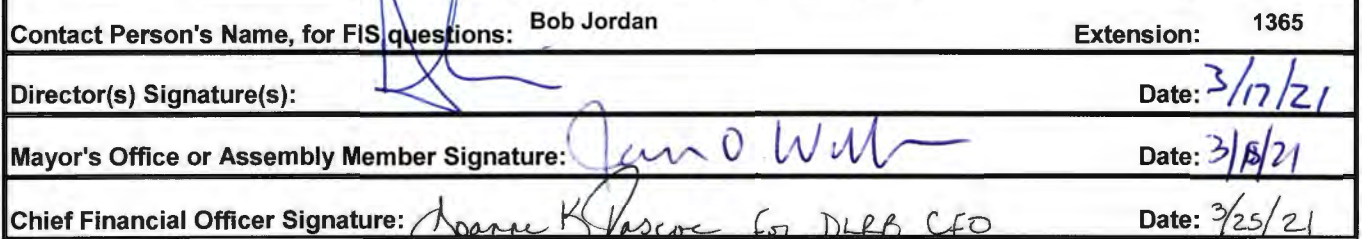 Contact Person's Name, for FIS questions: Bob Jordan Extension: 1365
Director(s) Signature(s): Date: 3/17/21
Mayor's Office or Assembly Member Signature: Date: 3/18/21
Chief Financial Officer Signature: K Pascoe for CFO Date: 3/25/21